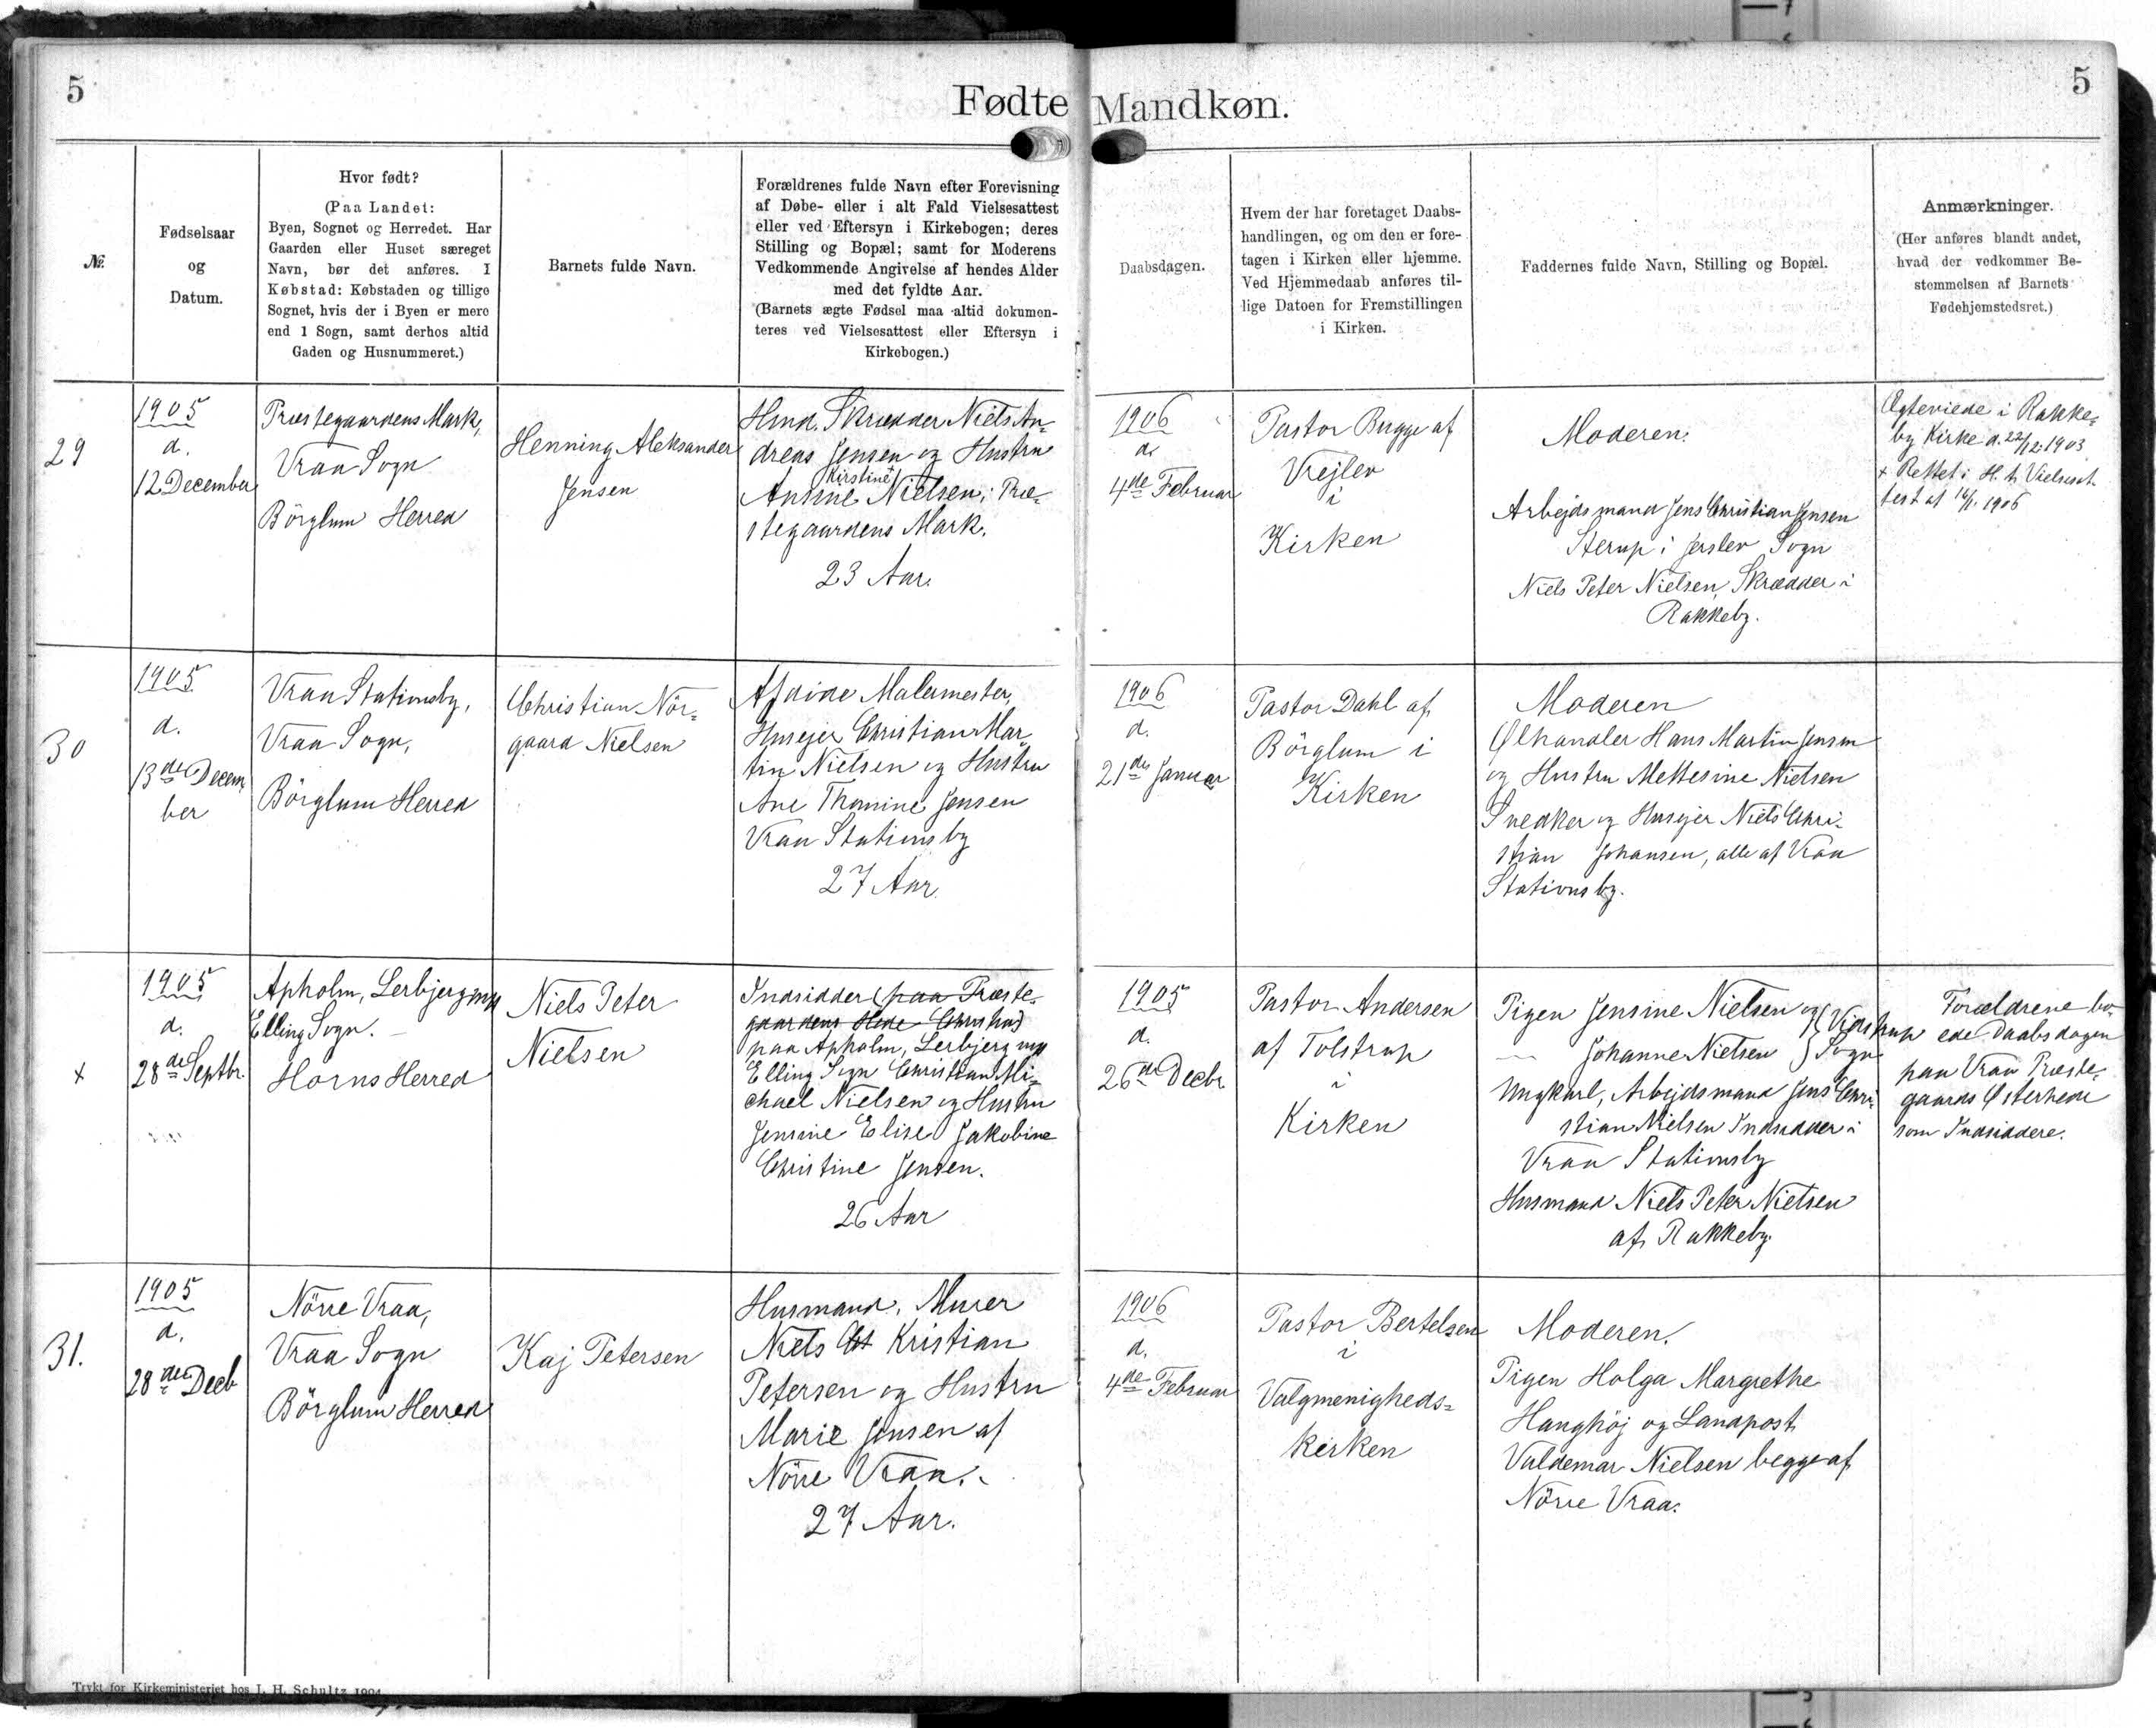 5
Fødte Mandkøn.
5
№
Fødselsaar
og
Datum.
Hvor født?
(Paa Landet:
Byen, Sognet og Herredet. Har
Gaarden eller Huset særeget
Navn, bør det anføres. I
Købstad: Købstaden og tillige
Sognet, hvis der i Byen er mere
end 1 Sogn, samt derhos altid
Gaden og Husnummeret.)
Barnets fulde Navn.
Forældrenes fulde Navn efter Forevisning
af Døbe- eller i alt Fald Vielsesattest
eller ved Eftersyn i Kirkebogen; deres
Stilling og Bopæl; samt for Moderens
Vedkommende Angivelse af hendes Alder
med det fyldte Aar.
(Barnets ægte Fødsel maa altid dokumen-
teres ved Vielsesattest eller Eftersyn i
Kirkebogen.)
Daabsdagen.
Hvem der har foretaget Daabs-
handlingen, og om den er fore-
tagen i Kirken eller hjemme.
Ved Hjemmedaab anføres til-
lige Datoen for Fremstillingen
i Kirken.
Faddernes fulde Navn, Stilling og Bopæl.
Anmærkninger.
(Her anføres blandt andet,
hvad der vedkommer Be-
stemmelsen af Barnets
Fødehjemstedsret.)
29
1905
d.
12 December
Præstegaardens Mark,
Vraa Sogn
Börglum Herred
Henning Aleksander
Jensen
Hmd. Skrædder Niels An-
dreas Jensen og Hustru
Kirstine +
Ansine Nielsen i Præ-
stegaardens Mark.
23 Aar.
1906
d.
4de Februar
Pastor Bugge af
Vrejlev
i
Kirken
Moderen.
Arbejdsmand Jens Christian Jensen
Sterup i Jerslev Sogn
Niels Peter Nielsen, Skrædder i
Rakkeby.
Ægteviede i Rakke-
by Kirke d. 22/12 1903
+ Rettet i H. t. Vielsesat-
test af 16/1 1906
30
1905
d.
13de Decem-
ber
Vraa Stationsby,
Vraa Sogn,
Börglum Herred
Christian Nör-
gaard Nielsen
Afdøde Malermester,
Husejer Christian Mar-
tin Nielsen og Hustru
Ane Thomine Jensen
Vraa Stationsby
27 Aar.
1906
d.
21de Januar
Pastor Dahl af
Börglum i
Kirken
Moderen
Ølhandler Hans Martin Jensen
og Hustru Mettesine Nielsen
Snedker og Husejer Niels Chri-
stian Johansen, alle af Vraa
Stationsby.
x
1905
d.
28de Septbr.
Apholm, Lerbjergmyr
Elling Sogn.
Horns Herred
Niels Peter
Nielsen
Indsidder (paa Præste-
gaardens Hede Christian)
paa Apholm, Lerbjerg myr
Elling Sogn Christian Mi-
chael Nielsen og Hustru
Jensine Elise Jakobine
Christine Jensen.
26 Aar
1905
d.
26de Decbr.
Pastor Andersen
af Tolstrup
i
Kirken
Pigen Jensine Nielsen og } Vidstrup
— Johanne Nielsen } Sogn
Ungkarl, Arbejdsmand Jens Chri-
stian Nielsen Indsidder i
Vraa Stationsby
Husmand Niels Peter Nielsen
af Rakkeby.
Forældrene bo-
ede Daabsdagen
paa Vraa Præste-
gaards Østerhede
som Indsiddere.
31.
1905
d.
28de Decb
Nörre Vraa,
Vraa Sogn
Börglum Herred
Kaj Petersen
Husmand, Murer
Niels Kristian
Petersen og Hustru
Marie Jensen af
Nörre Vraa.
27 Aar.
1906
d.
4de Februar
Pastor Bertelsen
i
Valgmenigheds-
kirken
Moderen.
Pigen Holga Margrethe
Hanghöj og Landpost
Valdemar Nielsen begge af
Nörre Vraa.
Trykt for Kirkeministeriet hos J. H. Schultz 1904